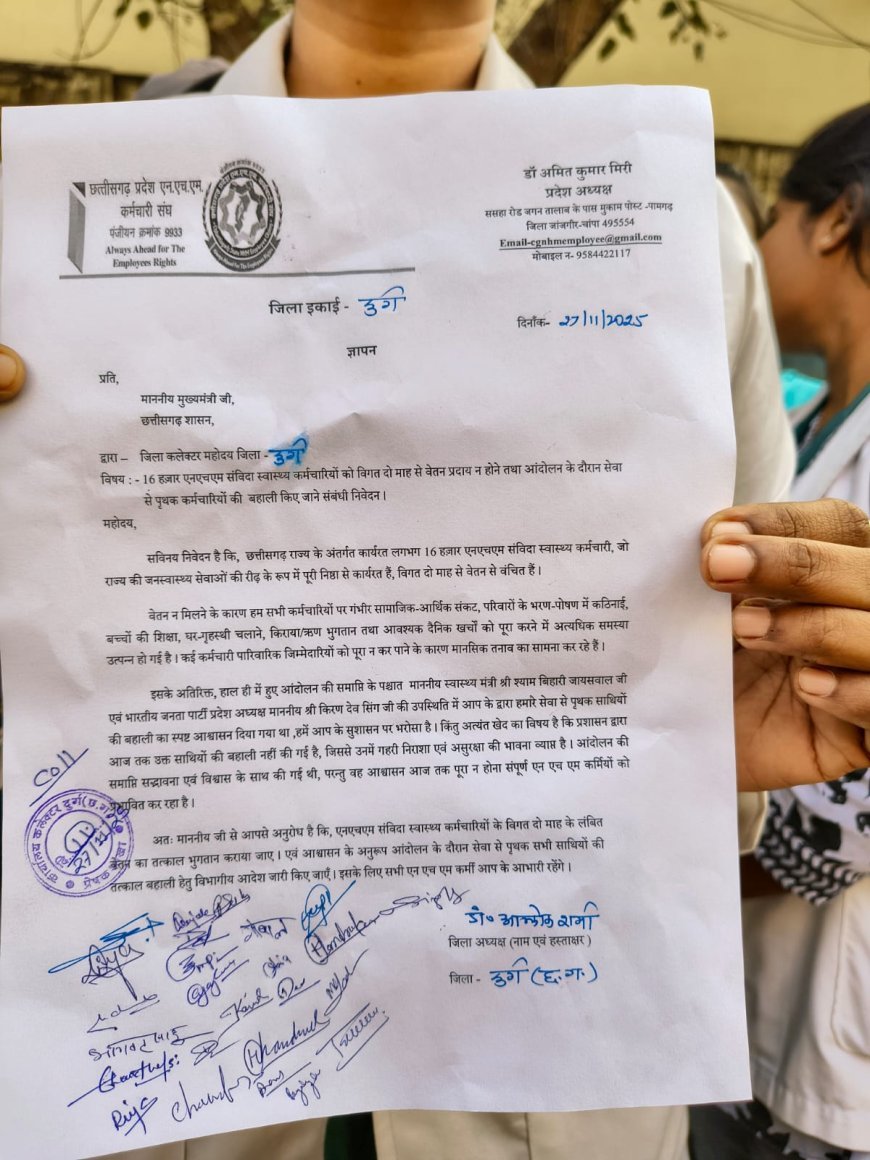 छत्तीसगढ़ प्रदेश एन.एच.एम.
कर्मचारी संघ
पंजीयन क्रमांक 9933
Always Ahead for The
Employees Rights
डॉ अमित कुमार मिरी
प्रदेश अध्यक्ष
ससहा रोड जगन तालाब के पास मुकाम पोस्ट -पामगढ़
जिला जांजगीर-चांपा 495554
Email-cgnhmemployee@gmail.com
मोबाइल न- 9584422117
जिला इकाई - दुर्ग
दिनाँक- 27/11/2025
ज्ञापन
प्रति,
माननीय मुख्यमंत्री जी,
छत्तीसगढ़ शासन,
द्वारा – जिला कलेक्टर महोदय जिला - दुर्ग
विषय : - 16 हज़ार एनएचएम संविदा स्वास्थ्य कर्मचारियों को विगत दो माह से वेतन प्रदाय न होने तथा आंदोलन के दौरान सेवा
से पृथक कर्मचारियों की बहाली किए जाने संबंधी निवेदन।
महोदय,
सविनय निवेदन है कि, छत्तीसगढ़ राज्य के अंतर्गत कार्यरत लगभग 16 हज़ार एनएचएम संविदा स्वास्थ्य कर्मचारी, जो
राज्य की जनस्वास्थ्य सेवाओं की रीढ़ के रूप में पूरी निष्ठा से कार्यरत हैं, विगत दो माह से वेतन से वंचित हैं।
वेतन न मिलने के कारण हम सभी कर्मचारियों पर गंभीर सामाजिक-आर्थिक संकट, परिवारों के भरण-पोषण में कठिनाई,
बच्चों की शिक्षा, घर-गृहस्थी चलाने, किराया/ऋण भुगतान तथा आवश्यक दैनिक खर्चों को पूरा करने में अत्यधिक समस्या
उत्पन्न हो गई है। कई कर्मचारी पारिवारिक जिम्मेदारियों को पूरा न कर पाने के कारण मानसिक तनाव का सामना कर रहे हैं।
इसके अतिरिक्त, हाल ही में हुए आंदोलन की समाप्ति के पश्चात माननीय स्वास्थ्य मंत्री श्री श्याम बिहारी जायसवाल जी
एवं भारतीय जनता पार्टी प्रदेश अध्यक्ष माननीय श्री किरण देव सिंग जी की उपस्थिति में आप के द्वारा हमारे सेवा से पृथक साथियों
की बहाली का स्पष्ट आश्वासन दिया गया था ,हमें आप के सुशासन पर भरोसा है। किंतु अत्यंत खेद का विषय है कि प्रशासन द्वारा
आज तक उक्त साथियों की बहाली नहीं की गई है, जिससे उनमें गहरी निराशा एवं असुरक्षा की भावना व्याप्त है। आंदोलन की
समाप्ति सद्भावना एवं विश्वास के साथ की गई थी, परन्तु वह आश्वासन आज तक पूरा न होना संपूर्ण एन एच एम कर्मियों को
प्रभावित कर रहा है।
अतः माननीय जी से आपसे अनुरोध है कि, एनएचएम संविदा स्वास्थ्य कर्मचारियों के विगत दो माह के लंबित
वेतन का तत्काल भुगतान कराया जाए। एवं आश्वासन के अनुरूप आंदोलन के दौरान सेवा से पृथक सभी साथियों की
तत्काल बहाली हेतु विभागीय आदेश जारी किए जाएँ। इसके लिए सभी एन एच एम कर्मी आप के आभारी रहेंगे।
Coll
कार्यालय कलेक्टर दुर्ग (छ.ग.)
27/11
डॉ० आलोक शर्मा
जिला अध्यक्ष (नाम एवं हस्ताक्षर )
जिला - दुर्ग (छ.ग.)
Riya